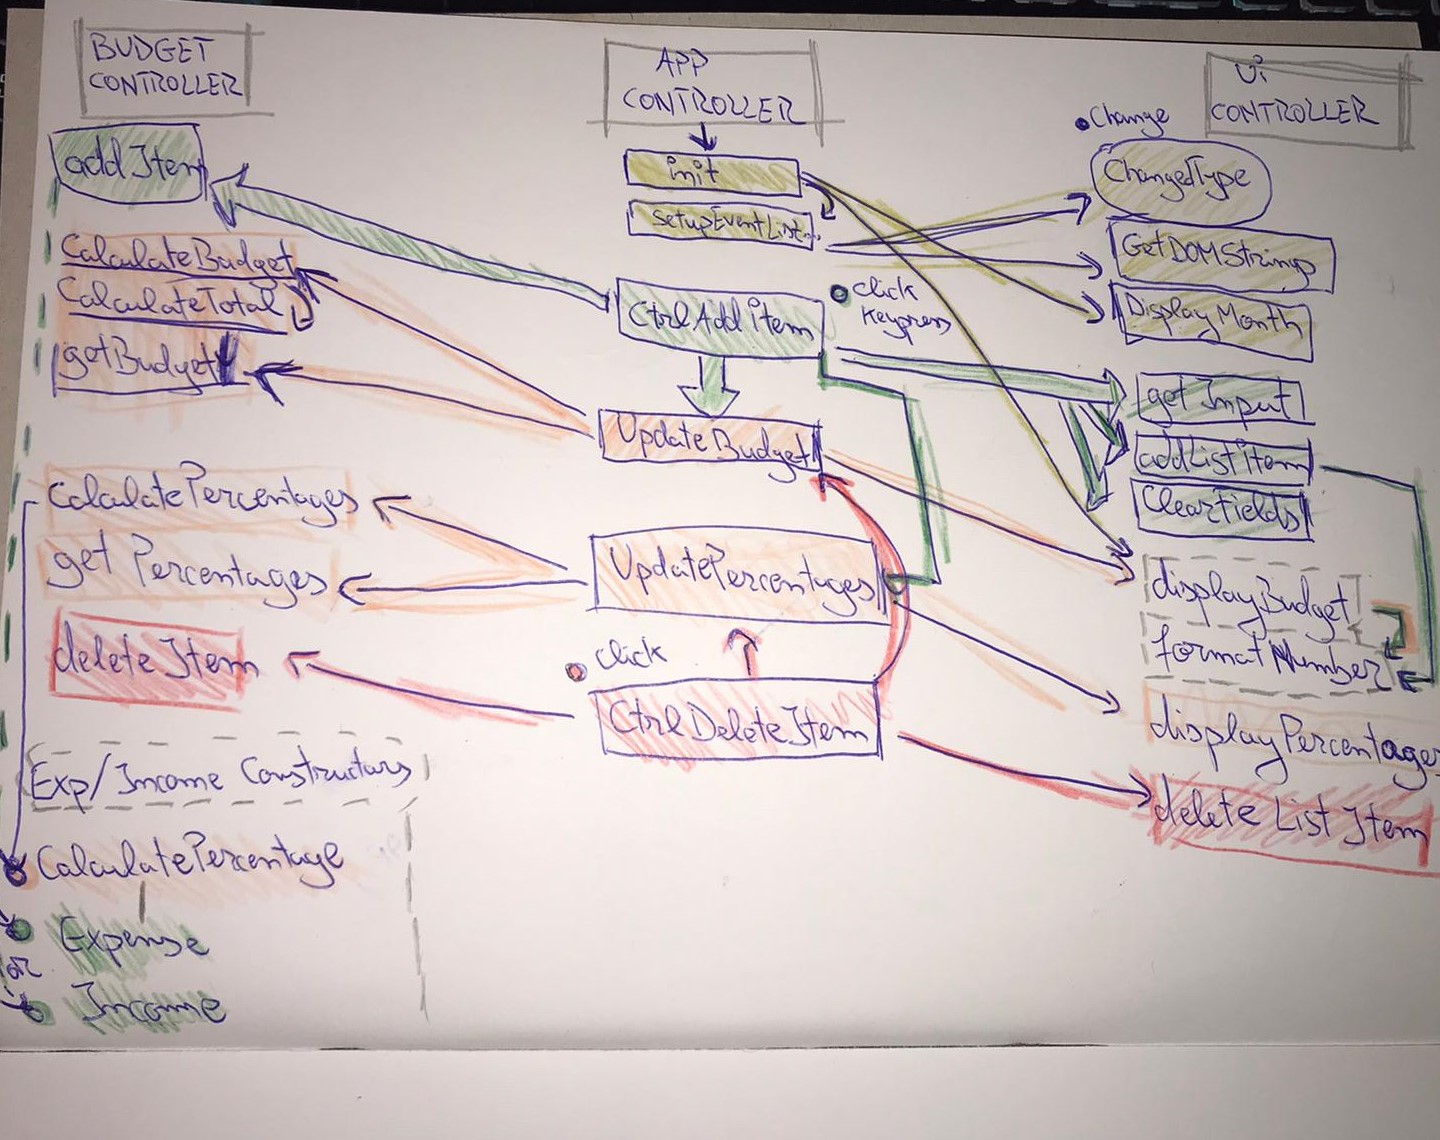 BUDGET
CONTROLLER
addItem
CalculateBudget
CalculateTotal
getBudget
CalculatePercentages
get Percentages
deleteItem
Exp/Income Constructors
CalculatePercentage
Expense
or
Income
APP
CONTROLLER
init
setupEventList..
CtrlAddItem
click
keypress
UpdateBudget
UpdatePercentages
click
CtrlDeleteItem
Ui
CONTROLLER
Change
ChangedType
GetDOMStrings
DisplayMonth
getInput
addListItem
ClearFields
displayBudget
formatNumber
displayPercentages
delete List Item